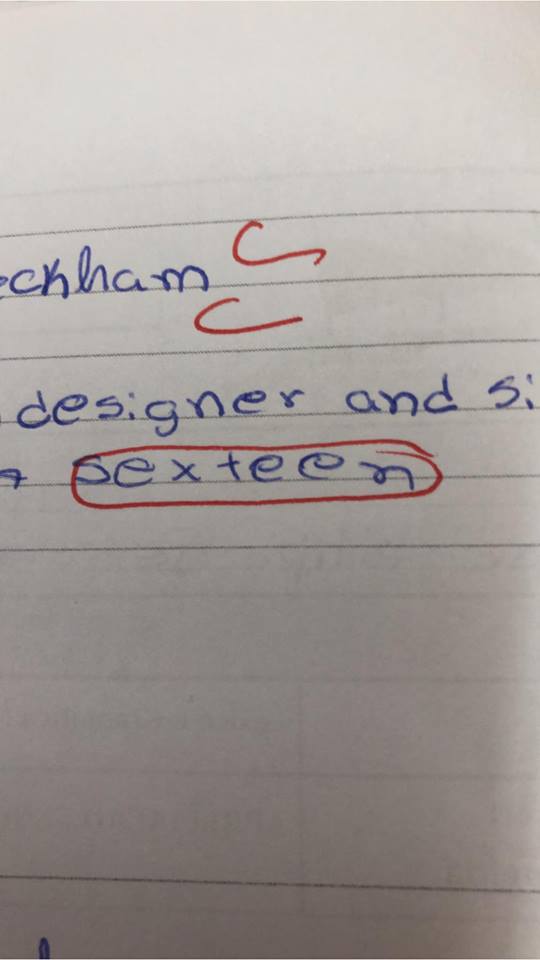 eckham
designer and si
sexteen